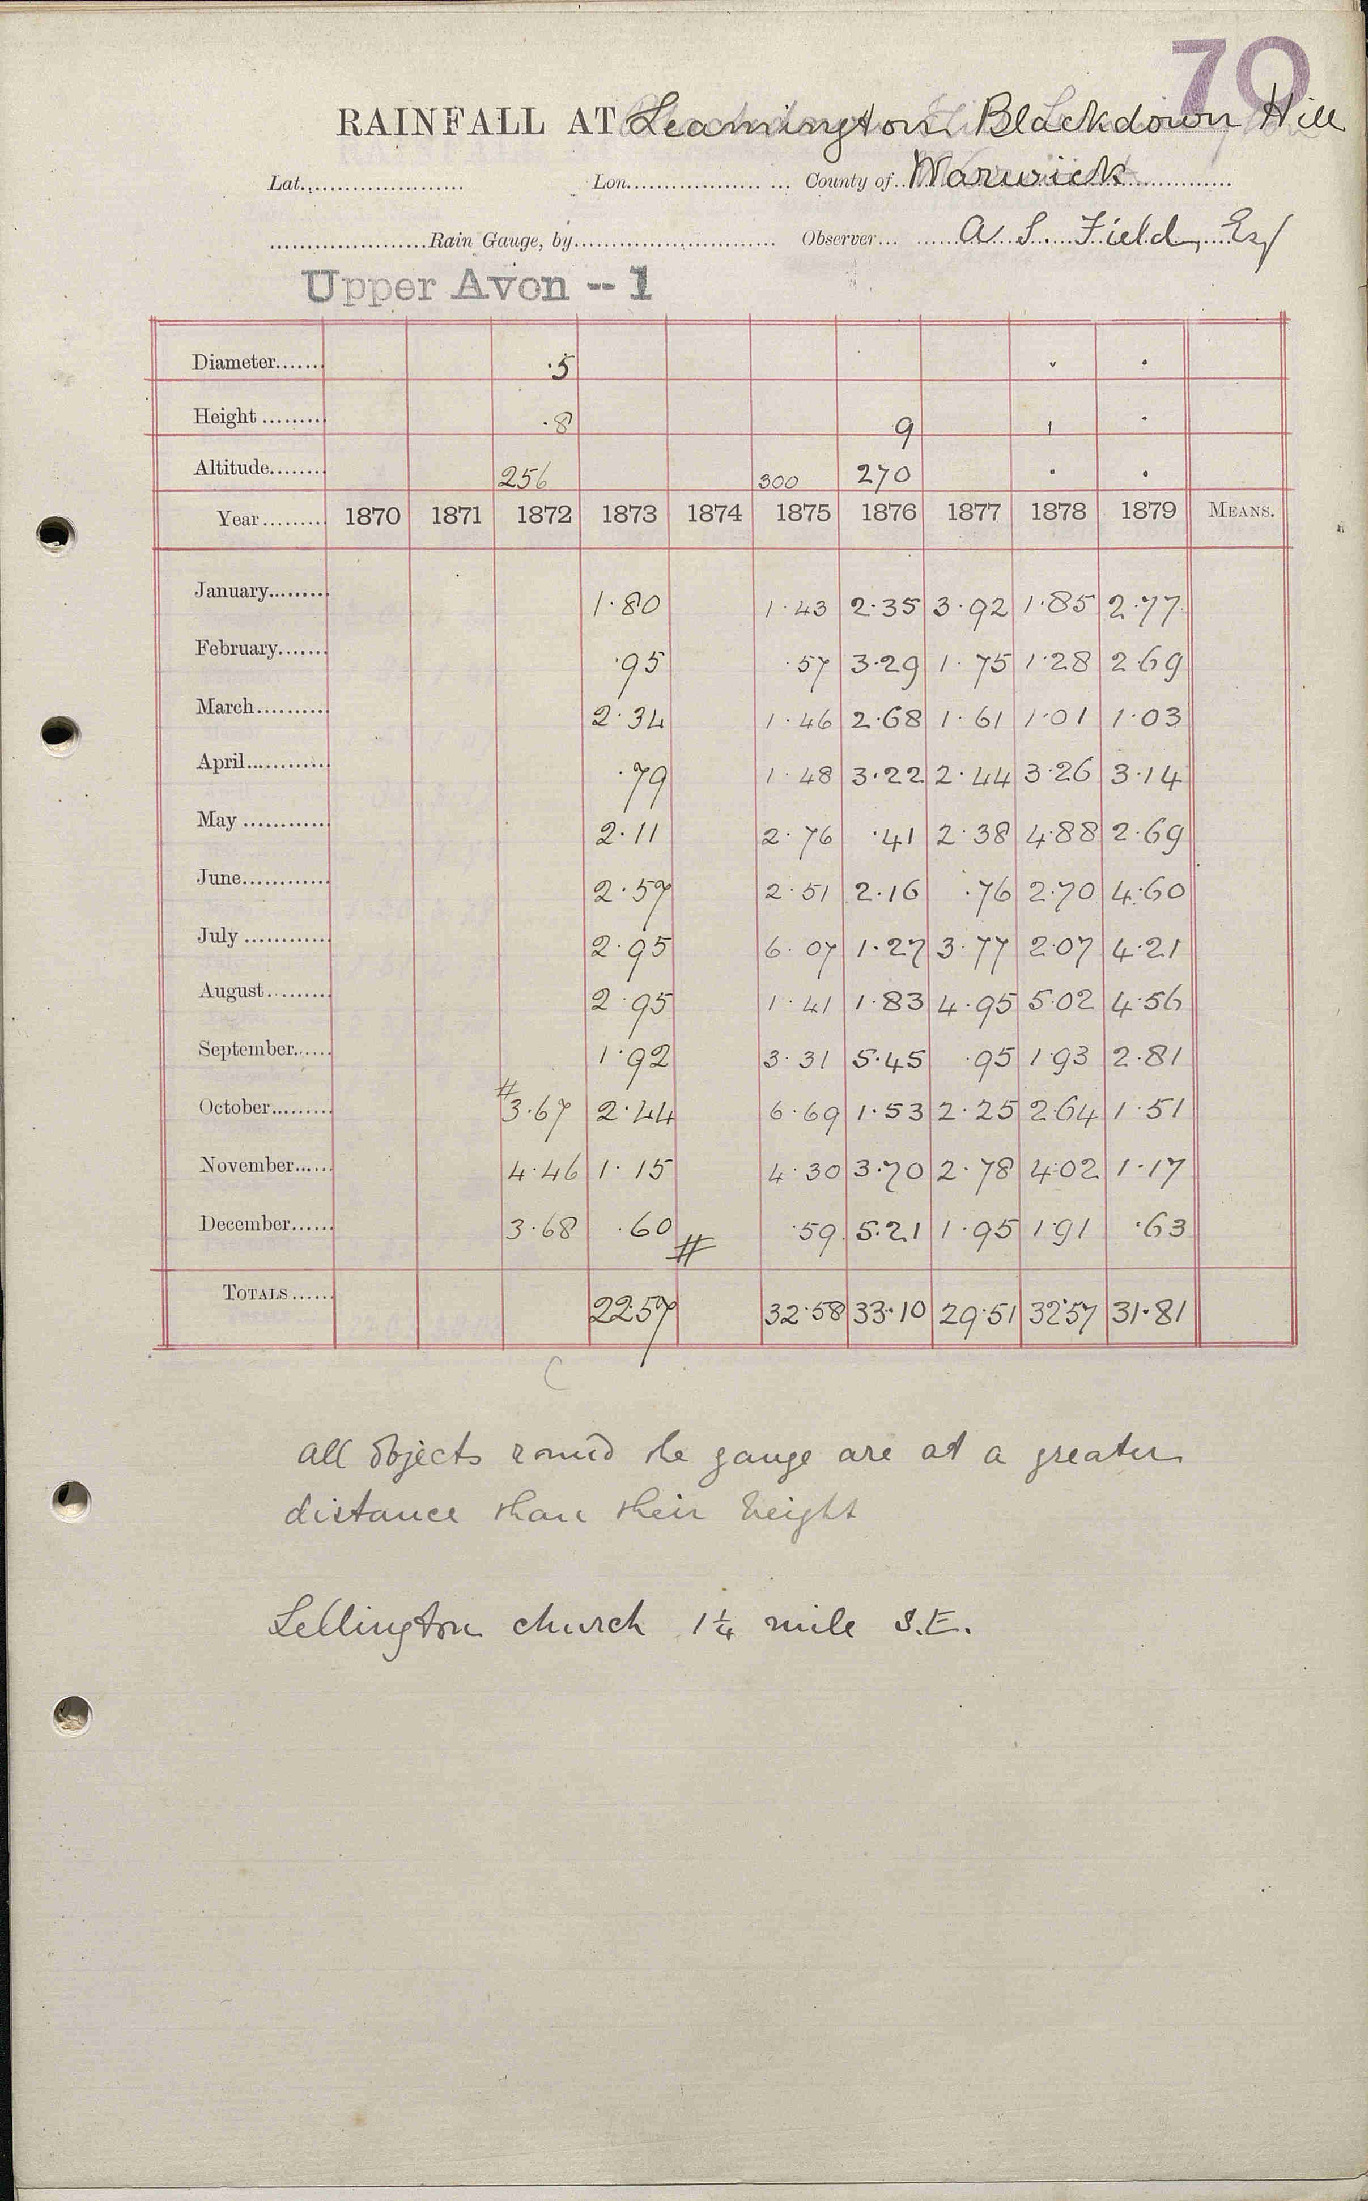 70
RAINFALL AT Leamington Blackdown Hill
Lat. Lon. County of Warwick
Rain Gauge, by Observer A. S. Field, Esq
Upper Avon -- 1
Diameter ·5
Height ·8 9 1
Altitude 256 300 270
Year 1870 1871 1872 1873 1874 1875 1876 1877 1878 1879 MEANS.
January 1·80 1·43 2·35 3·92 1·85 2·77
February ·95 ·57 3·29 1·75 1·28 2·69
March 2·34 1·46 2·68 1·61 1·01 1·03
April ·79 1·48 3·22 2·44 3·26 3·14
May 2·11 2·76 ·41 2·38 4·88 2·69
June 2·57 2·51 2·16 ·76 2·70 4·60
July 2·95 6·07 1·27 3·77 2·07 4·21
August 2·95 1·41 1·83 4·95 5·02 4·56
September 1·92 3·31 5·45 ·95 1·93 2·81
October #3·67 2·44 6·69 1·53 2·25 2·64 1·51
November 4·46 1·15 4·30 3·70 2·78 4·02 1·17
December 3·68 ·60 # ·59 5·21 1·95 1·91 ·63
TOTALS 22·57 32·58 33·10 29·51 32·57 31·81
all objects round the gauge are at a greater
distance than their height
Lellington church 1¼ mile S.E.